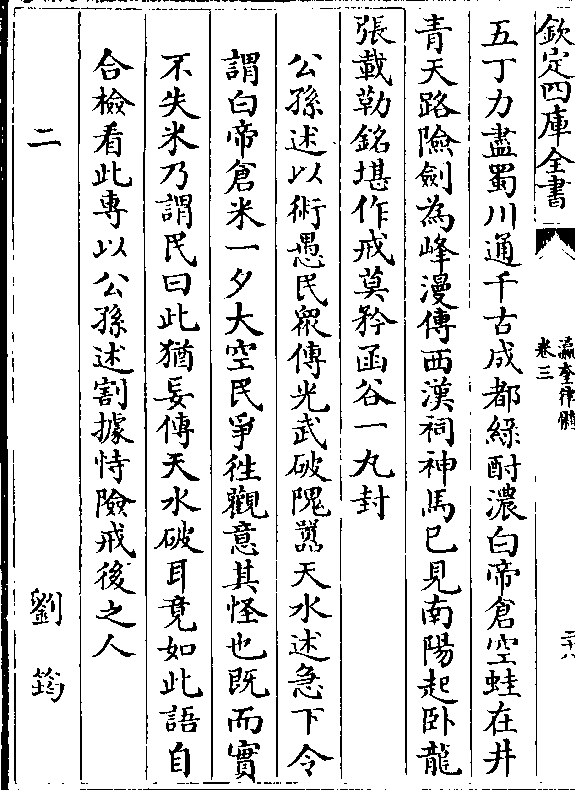 欽定四庫全書
瀛奎律髓
卷三
二十八
五丁力盡蜀川通千古成都緑酎濃白帝倉空蛙在井
青天路險劍為峰漫傳西漢祠神馬已見南陽起卧龍
張載勒銘堪作戒莫矜函谷一丸封
公孫述以術愚民衆傳光武破隗囂天水述急下令
謂白帝倉米一夕大空民爭徃觀意其怪也既而實
不失米乃謂民曰此猶妄傳天水破耳竟如此語自
合檢看此専以公孫述割據恃險戒後之人
二　劉筠